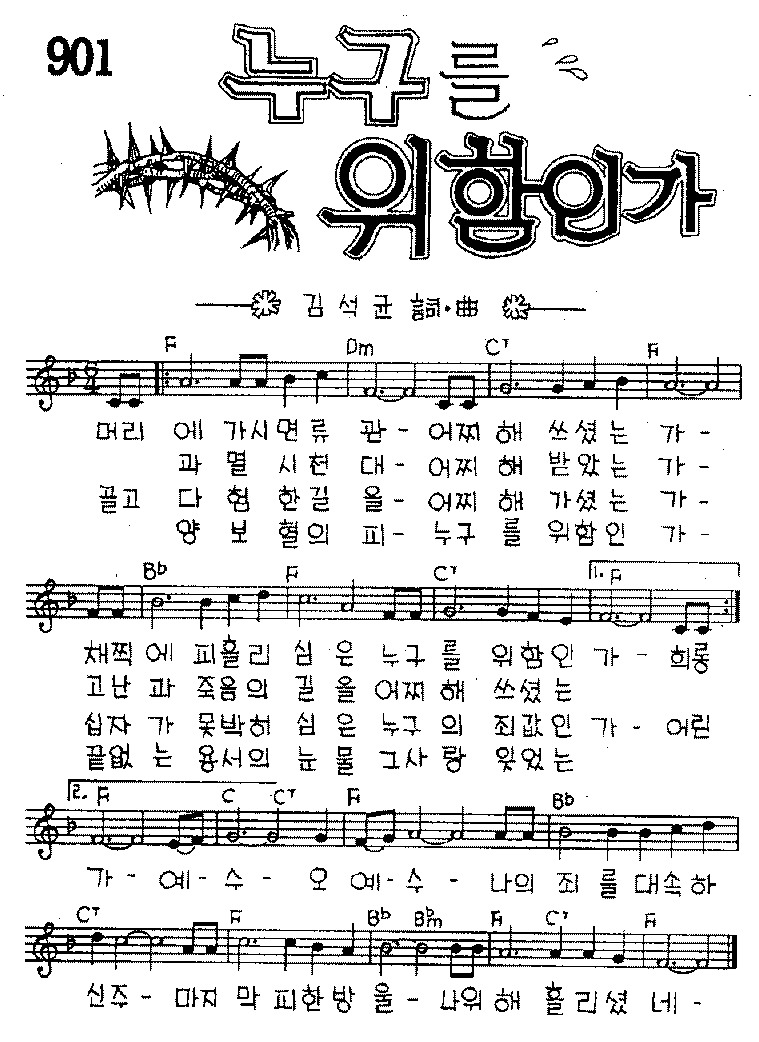 901
누구를
위함인가
김석균 詞·曲
F Dm C7 F
머리 에 가시면류 관 - 어찌 해 쓰셨는 가 -
과 멸 시천 대 - 어찌 해 받았는 가 -
골고 다 험 한길 을 - 어찌 해 가셨는 가 -
양 보 혈의 피 - 누구 를 위함인 가 -
Bb F C7 1. F
채찍 에 피흘리 심 은 누구 를 위함인 가 - 희롱
고난 과 죽음의 길 을 어찌 해 쓰셨 는
십자 가 못박혀 심 은 누구 의 죄값인 가 - 어린
끝없 는 용서의 눈 물 그사 랑 잊었는
2. F C C7 F Bb
가 - 예 - 수 - 오 예 - 수 - 나의 죄 를 대속하
C7 F Bb Bbm F C7 F
신주 - 마지 막 피한방 울 - 나위 해 흘리셨 네 -